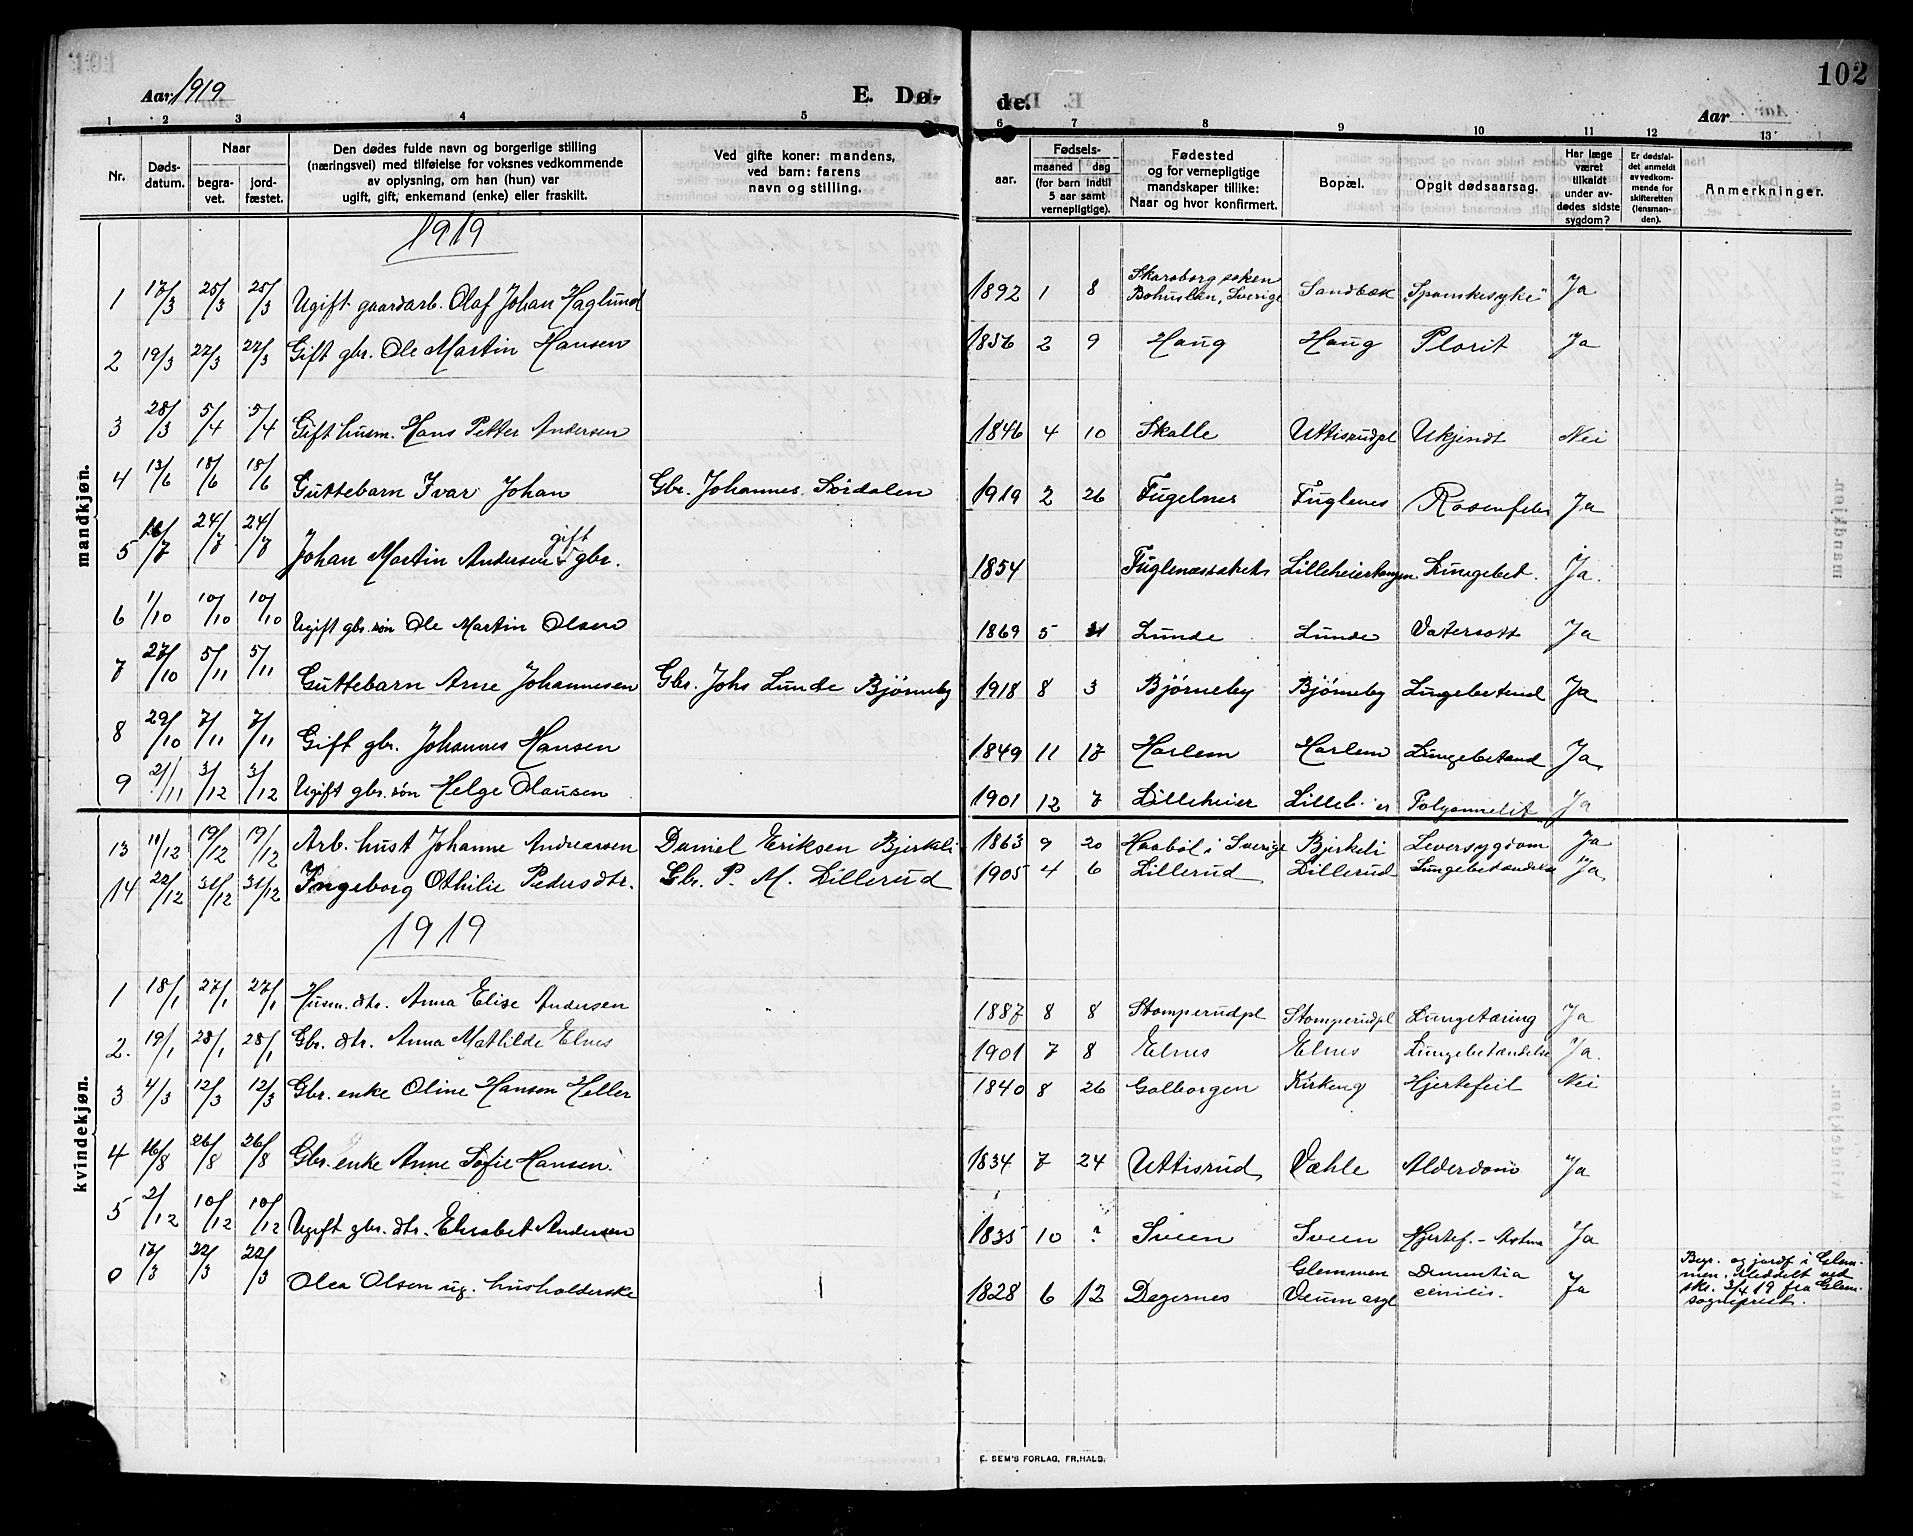 102
Aar 1919 E. Dø- de. Aar
1 2 3 4 5 6 7 8 9 10 11 12 13
Nr. Døds-datum. Naar begra-vet. jord-fæstet. Den dødes fulde navn og borgerlige stilling (næringsvei) med tilføielse for voksnes vedkommende av oplysning, om han (hun) var ugift, gift, enkemand (enke) eller fraskilt. Ved gifte koner: mandens, ved barn: farens navn og stilling. aar. Fødsels- maaned dag (for barn indtil 5 aar samt vernepligtige). Fødested og for vernepligtige mandskaper tillike: Naar og hvor konfirmert. Bopæl. Opgit dødsaarsag. Har læge været tilkaldt under av-dødes sidste sygdom? Er dødsfal-det anmeldt av vedkom-mende for skifteretten (lensman-den). Anmerkninger.
mandkjøn.
1919
1 17/3 25/3 25/3 Ugift gaardarb. Olaf Johan Haglund 1892 1 8 Skaraborg soken Bohuslän, Sverige Sandbæk "Spanskesyke" Ja
2 19/3 27/3 27/3 Gift gbr. Ole Martin Hansen 1856 2 9 Haug Haug Plorit Ja
3 28/3 5/4 5/4 Gift husm. Hans Petter Andersen 1846 4 10 Skalle Uttisrudpl Ukjendt Nei
4 13/6 18/6 18/6 Guttebarn Ivar Johan Gbr. Johannes Sørdalen 1919 2 26 Fugelnes Fuglenes Rosenfeber Ja
5 16/7 24/7 24/7 Johan Martin Andersen gift gbr. 1854 Lilleheier Lungebet. Ja.
6 1/10 10/10 10/10 Ugift gbr. søn Ole Martin Olsen 1869 5 Lunde Lunde Vatersott Ja
7 27/10 5/11 5/11 Guttebarn Arne Johannesen Gbr. Johs Lunde Bjørneby 1918 8 3 Bjørneby Bjørneby Lungebetend Ja
8 29/10 7/11 7/11 Gift gbr. Johannes Hansen 1849 11 17 Harlem Harlem Lungebetænd Ja
9 2/11 3/12 3/12 Ugift gbr. søn Helge Olausen 1901 12 7 Lilleheier Ja
kvindekjøn.
13 11/12 19/12 19/12 Arb. hust Johanne Andreassen Daniel Eriksen Bjerkeli 1863 9 20 Haabøl i Sverige Bjerkeli Leversygdom Ja
14 22/12 31/12 31/12 Ingeborg Othilie Pedersdtr. Gbr. P. M. Lillerud 1905 4 6 Lillerud Lillerud Lungebetændelse Ja
1919
1 18/1 27/1 27/1 Husm. dtr. Anna Elise Andersen 1887 8 8 Stomperudpl Stomperudpl Lungetæring Ja
2. 19/1 28/1 28/1 Gbr. dtr. Anna Mathilde Elnes 1901 7 8 Elnes Elnes Lungebetændelse Ja.
3 4/3 12/3 12/3 Gbr. enke Oline Hansen Heller 1840 8 26 Golborgen Kirkeng Hjertefeil Nei
4 16/8 26/8 26/8 Gbr. enke Anne Sofie Hansen. 1834 7 24 Uttisrud Væhle Alderdom Ja
5 2/12 10/12 10/12 Ugift gbr. dtr. Elisabet Andersen 1835 10 ? Sveen Sveen Hjertef. - Astma Ja
0 17/3 22/3 22/3 Olea Olsen ug. husholderske 1828 6 12 Degernes Glemmen Veum asyl Dementia senilis. Ja Begr. og jordf i Glemmen. Meddelt ved skr. 3/4 19 fra Glem. sogneprest.
E. SEM'S FORLAG, FR.HALD.